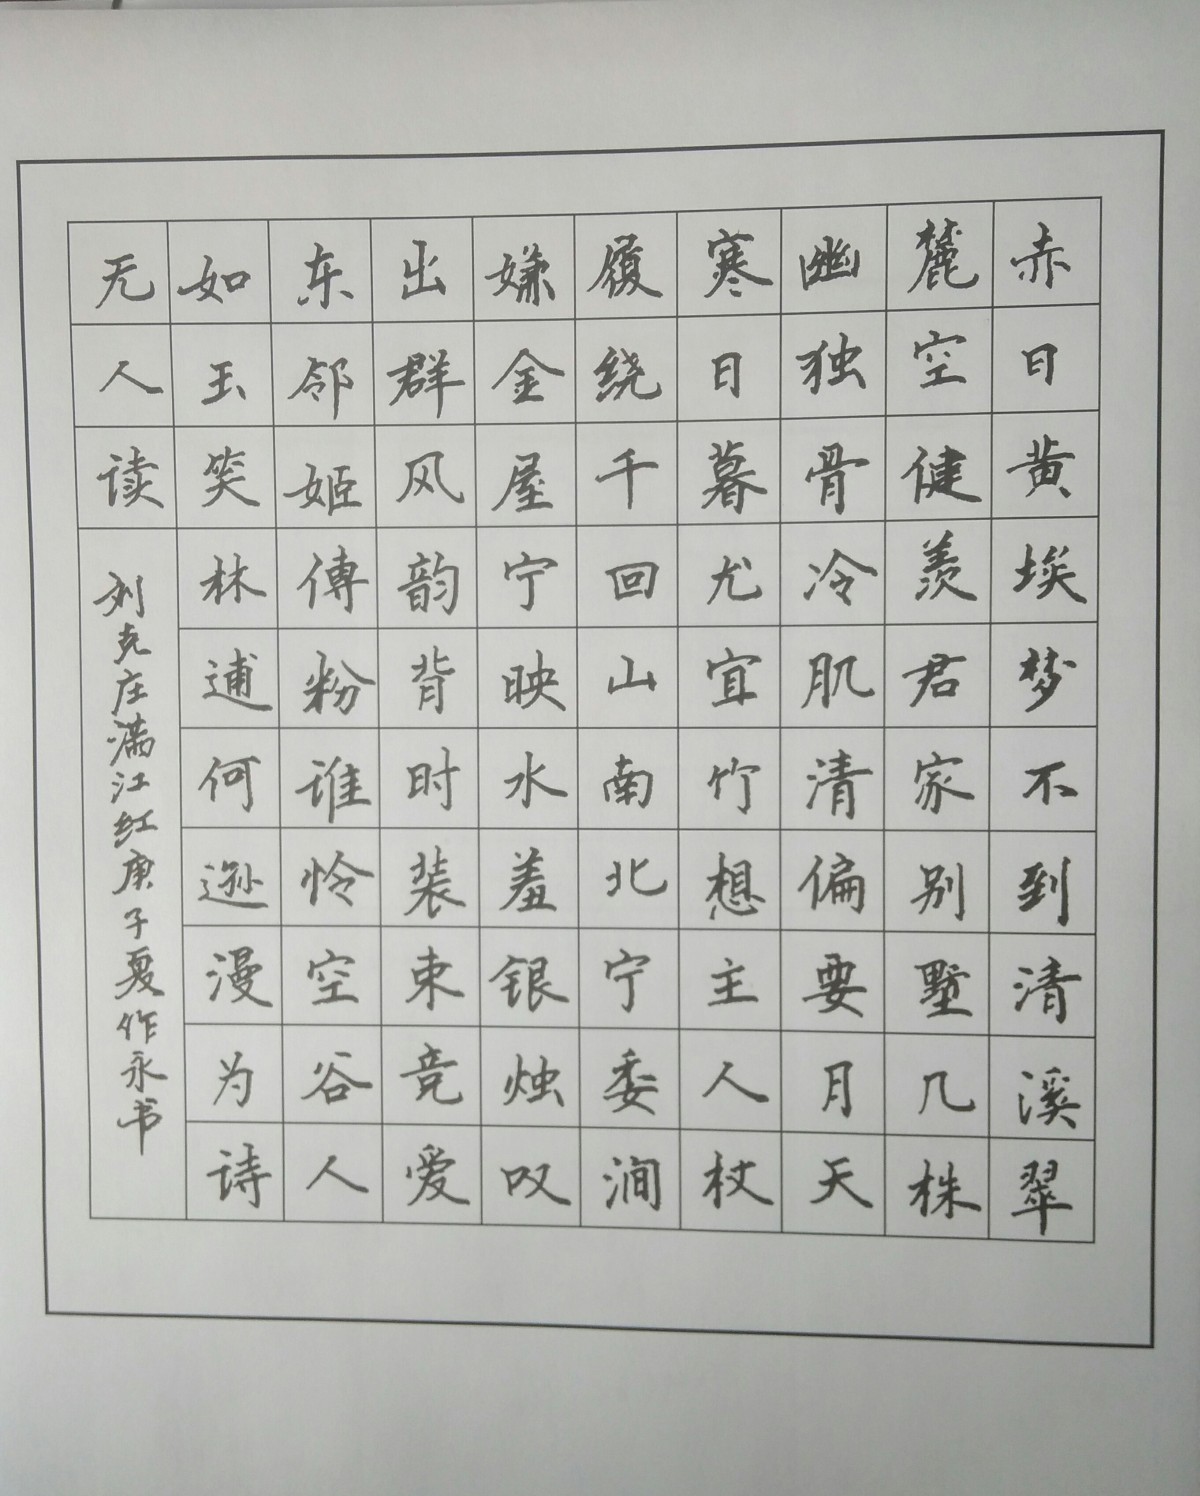 赤日黄埃梦不到清溪翠
麓空健羡君家别墅几株
幽独骨冷肌清偏要月天
寒日暮尤宜竹想主人杖
履绕千回山南北宁委涧
嫌金屋宁映水羞银烛叹
出群风韵背时装束竞爱
东邻姬傅粉谁怜空谷人
如玉笑林逋何逊漫为诗
无人读
刘克庄满江红庚子夏作永书